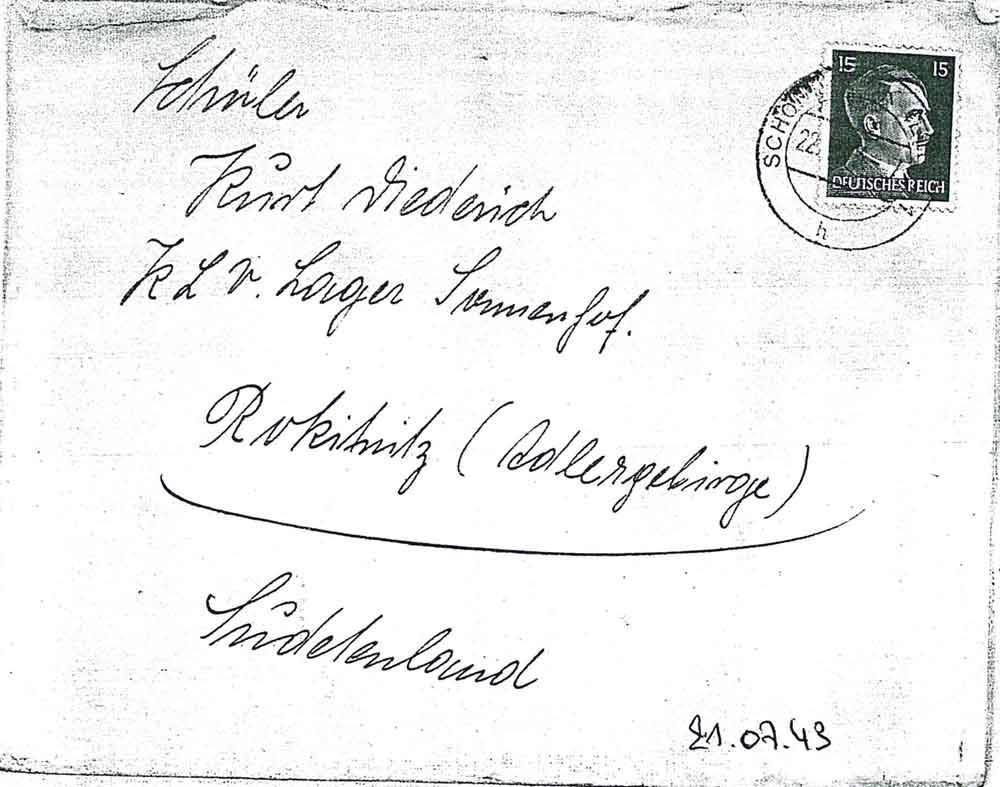 15 15
SCHÖN
22.
DEUTSCHES REICH
h
Schüler
Kurt Diederich
KLV. Lager Sonnenhof.
Rokitnitz (Adlergebirge)
Sudetenland
21.07.43